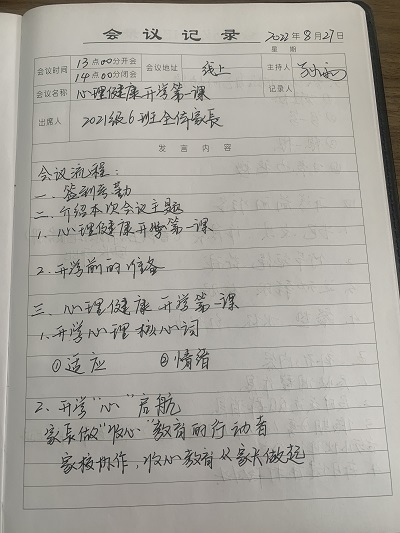 会议记录
2022年8月27日
星期
会议时间 13点00分开会 14点00分闭会 会议地址 线上 主持人
会议名称 心理健康开学第一课 记录人
出席人 2021级6班全体家长
发言内容
会议流程:
一、签到考勤
二、介绍本次会议主题
1、心理健康开学第一课
2、开学前的准备
三、心理健康开学第一课
1、开学心理核心词
①适应 ②情绪
2、开学“心”启航
家长做“收心”教育的行动者
家校协作,收心教育从家长做起